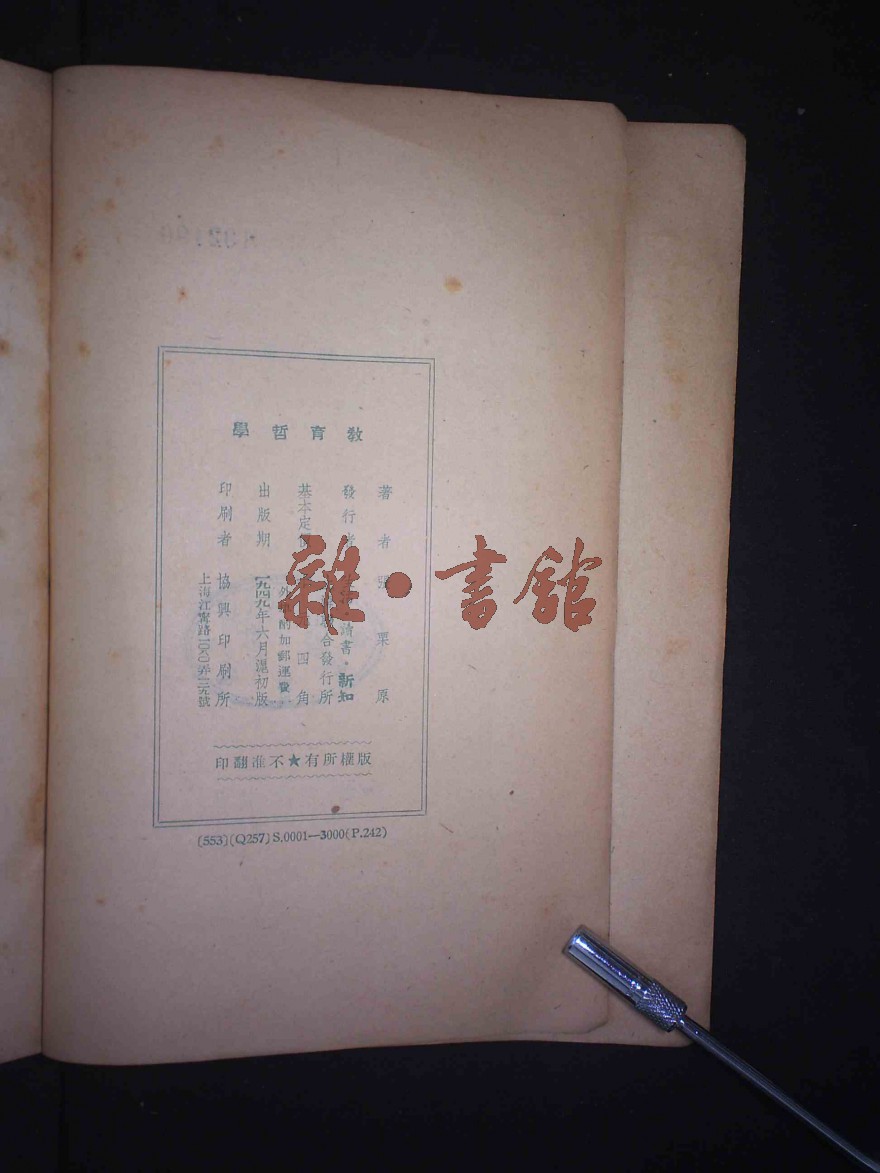 教育哲學
著者 張栗原
發行者 讀書·新知
聯合發行所
基本定價 四角
外埠酌加郵運費
出版期 一九四九年六月滬初版
印刷者 協興印刷所
上海江寧路
版權所有★不准翻印
(553)(Q257)S.0001—3000(P.242)
雜·書館